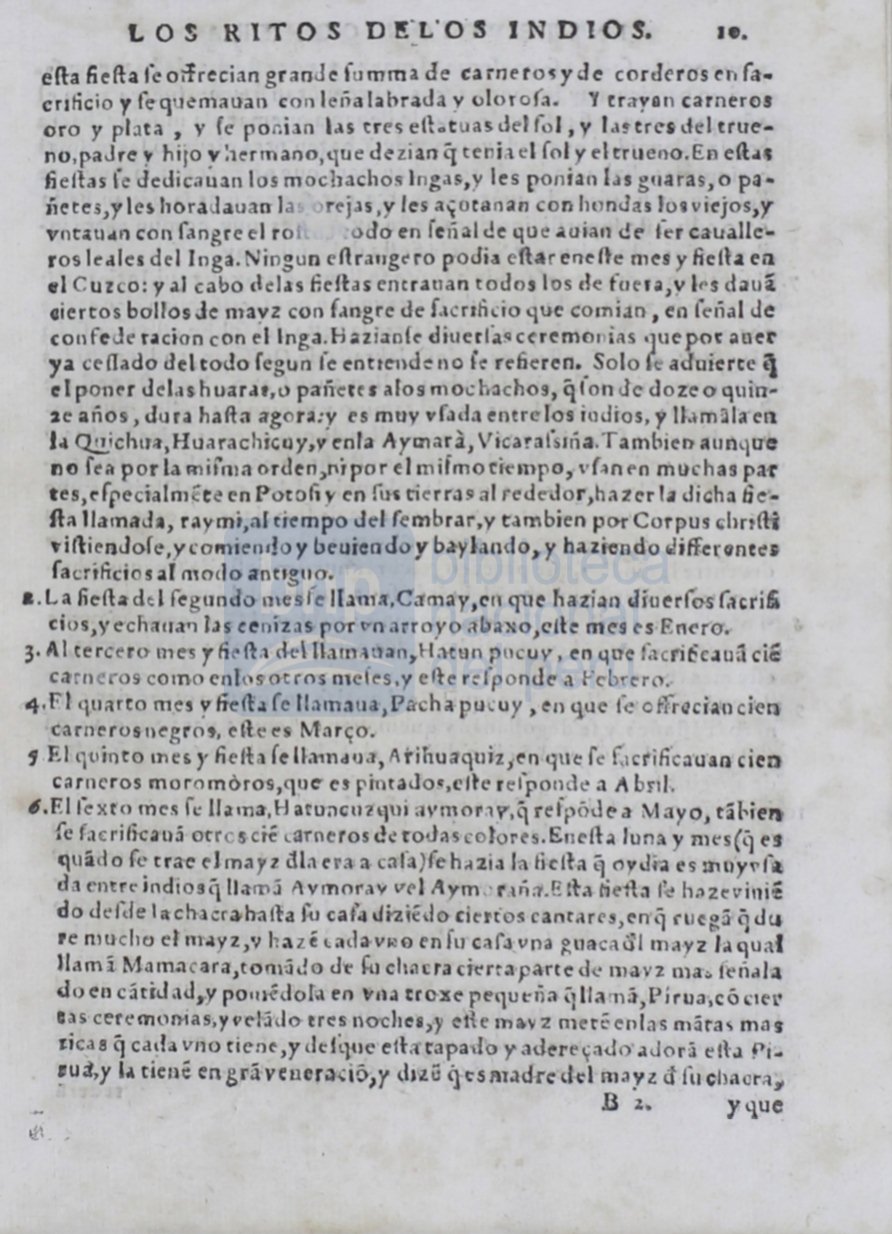 LOS RITOS DELOS INDIOS. 10.
esta fiesta se offrecian grande summa de carneros y de corderos en sa-
crificio y se quemauan con leña labrada y olorosa. Y trayan carneros
oro y plata, y se ponian las tres estatuas del sol, y las tres del true-
no, padre y hijo y hermano, que dezian q̃ tenia el sol y el trueno. En estas
fiestas se dedicauan los mochachos Ingas, y les ponian las guaras, o pa-
ñetes, y les horadauan las orejas, y les açotauan con hondas los viejos, y
vntauan con sangre el todo en señal de que auian de ser caualle-
ros leales del Inga. Ningun estrangero podia estar eneste mes y fiesta en
el Cuzco: y al cabo delas fiestas entrauan todos los de fuera, y les dauã
ciertos bollos de mayz con sangre de sacrificio que comian, en señal de
confederacion con el Inga. Hazianse diuersas ceremonias que por auer
ya cessado del todo segun se entiende no se refieren. Solo se aduierte q̃
el poner delas huaras, o pañetes alos mochachos, q̃ son de doze o quin-
ze años, dura hasta agora: y es muy vsada entre los indios, y llamãla en
la Quichua, Huarachicuy, y enla Aymarà, Vicarassiña. Tambien aunque
no sea por la misma orden, ni por el mismo tiempo, vsan en muchas par
tes, especialmẽte en Potosi y en sus tierras al rededor, hazer la dicha fie-
sta llamada, raymi, al tiempo del sembrar, y tambien por Corpus christi
vistiendose, y comiendo y beuiendo y baylando, y haziendo differentes
sacrificios al modo antiguo.
2. La fiesta del segundo mes se llama, Camay, en que hazian diuersos sacrifi
cios, y echauan las cenizas por vn arroyo abaxo, este mes es Enero.
3. Al tercero mes y fiesta del llamauan, Hatun pucuy, en que sacrificauã ciẽ
carneros como enlos otros meses, y este responde a Febrero.
4. El quarto mes y fiesta se llamaua, Pacha pucuy, en que se offrecian cien
carneros negros, este es Março.
5 El quinto mes y fiesta se llamaua, Arihuaquiz, en que se sacrificauan cien
carneros moromòros, que es pintados, este responde a Abril.
6. El sexto mes se llama, Hatuncuzqui aymoray, q̃ respõde a Mayo, tãbien
se sacrificauã otros ciẽ carneros de todas colores. Enesta luna y mes (q̃ es
quãdo se trae el mayz d̃la era a casa) se hazia la fiesta q̃ oy dia es muy vsa
da entre indios q̃ llamã Aymoray vel Aymoraña. Esta fiesta se haze viniẽ
do desde la chacra hasta su casa diziẽdo ciertos cantares, en q̃ ruegã q̃ du
re mucho el mayz, y hazẽ cada vno en su casa vna guaca d̃l mayz la qual
llamã Mamacara, tomãdo de su chacra cierta parte de mayz mas señala
do en cãtidad, y poniẽdola en vna troxe pequeña q̃ llamã, Pirua, cõ cier
tas ceremonias, y velãdo tres noches, y este mayz metẽ enlas mãtas mas
ricas q̃ cada vno tiene, y desque esta tapado y adereçado adorã esta Pi-
rua, y la tienẽ en grã veneraciõ, y dizẽ q̃ es madre del mayz d̃ su chacra,
B 2. y que
biblioteca